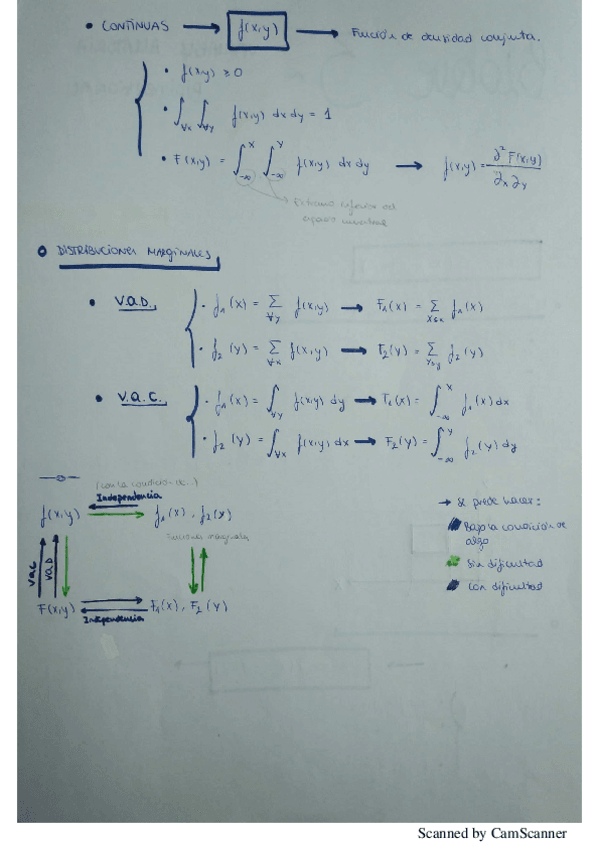 • CONTINUAS → f(x,y) → Función de densidad conjunta.
• f(x,y) ≥ 0
• ∫∀x ∫∀y f(x,y) dx dy = 1
• F(x,y) = ∫-∞^x ∫-∞^y f(x,y) dx dy → f(x,y) = ∂² F(x,y) / ∂x ∂y
Extremo inferior del
DISTRIBUCIONES MARGINALES
• V.a.D. • f₁(x) = Σ∀y f(x,y) → F₁(x) = Σ f₁(x)
• f₂(y) = Σ∀x f(x,y) → F₂(y) = Σ f₂(y)
• V.a.C. • f₁(x) = ∫∀y f(x,y) dy → F₁(x) = ∫-∞^x f₁(x) dx
• f₂(y) = ∫∀x f(x,y) dx → F₂(y) = ∫-∞^y f₂(y) dy
(con la condición de...)
Independencia
f(x,y) f₁(x), f₂(y)
Funciones marginales
VaC VaD
F(x,y) F₁(x), F₂(y)
Independencia
→ Se puede hacer:
Bajo la condición de
algo
Sin dificultad
Con dificultad
Scanned by CamScanner